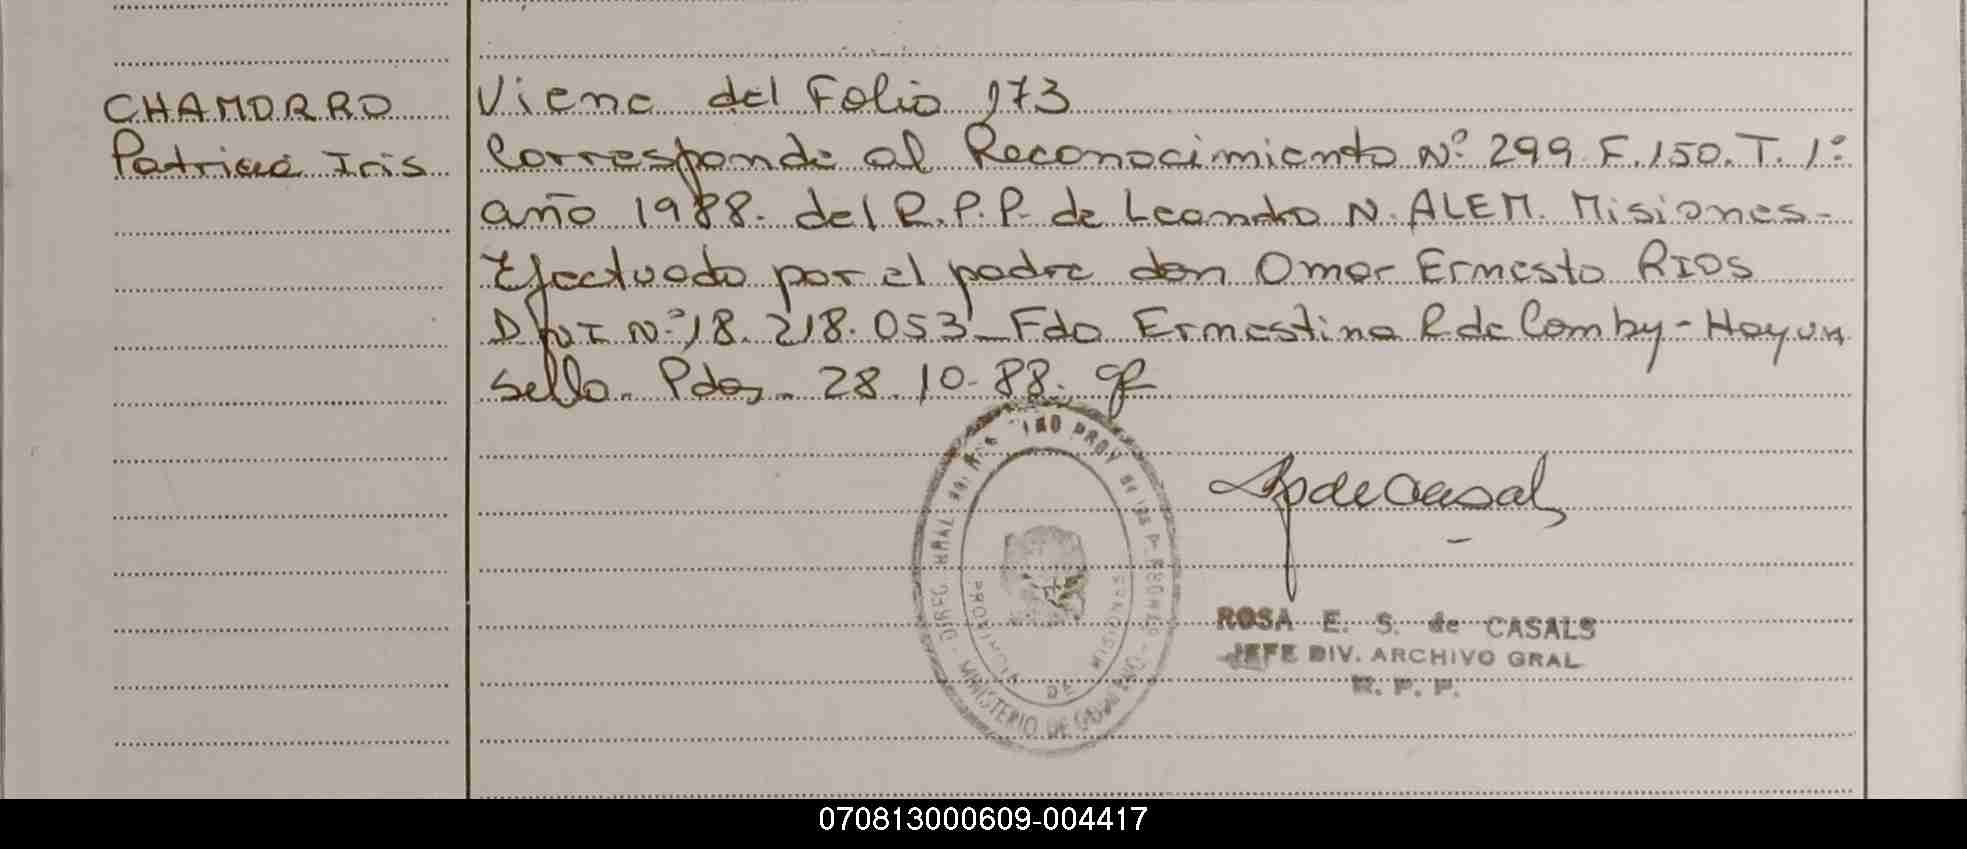 CHAMORRO
Patricia Iris
Viene del Folio 173
Corresponde al Reconocimiento Nº 299 F. 150. T. 1º
año 1988. del R.P.P. de Leandro N. ALEM. Misiones-
Efectuado por el padre don Omar Ernesto RIOS
DNI Nº 18.218.053 - Fdo Ernestina R de Comby - Hay un
sello. Pdas. 28.10.88.
DIREC. GRAL. PROV. MINISTERIO DE GOBIERNO
PROVINCIA DE MISIONES
de Casals
ROSA E. S. de CASALS
JEFE DIV. ARCHIVO GRAL
R. P. P.
070813000609-004417